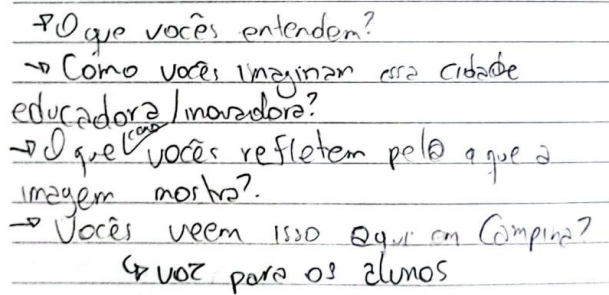 → O que vocês entendem?
→ Como vocês imaginam essa cidade
educadora/inovadora?
→ O que (como) vocês refletem pelo a que a
imagem mostra?.
→ Vocês veem isso aqui em Campina?
↳ voz para os alunos